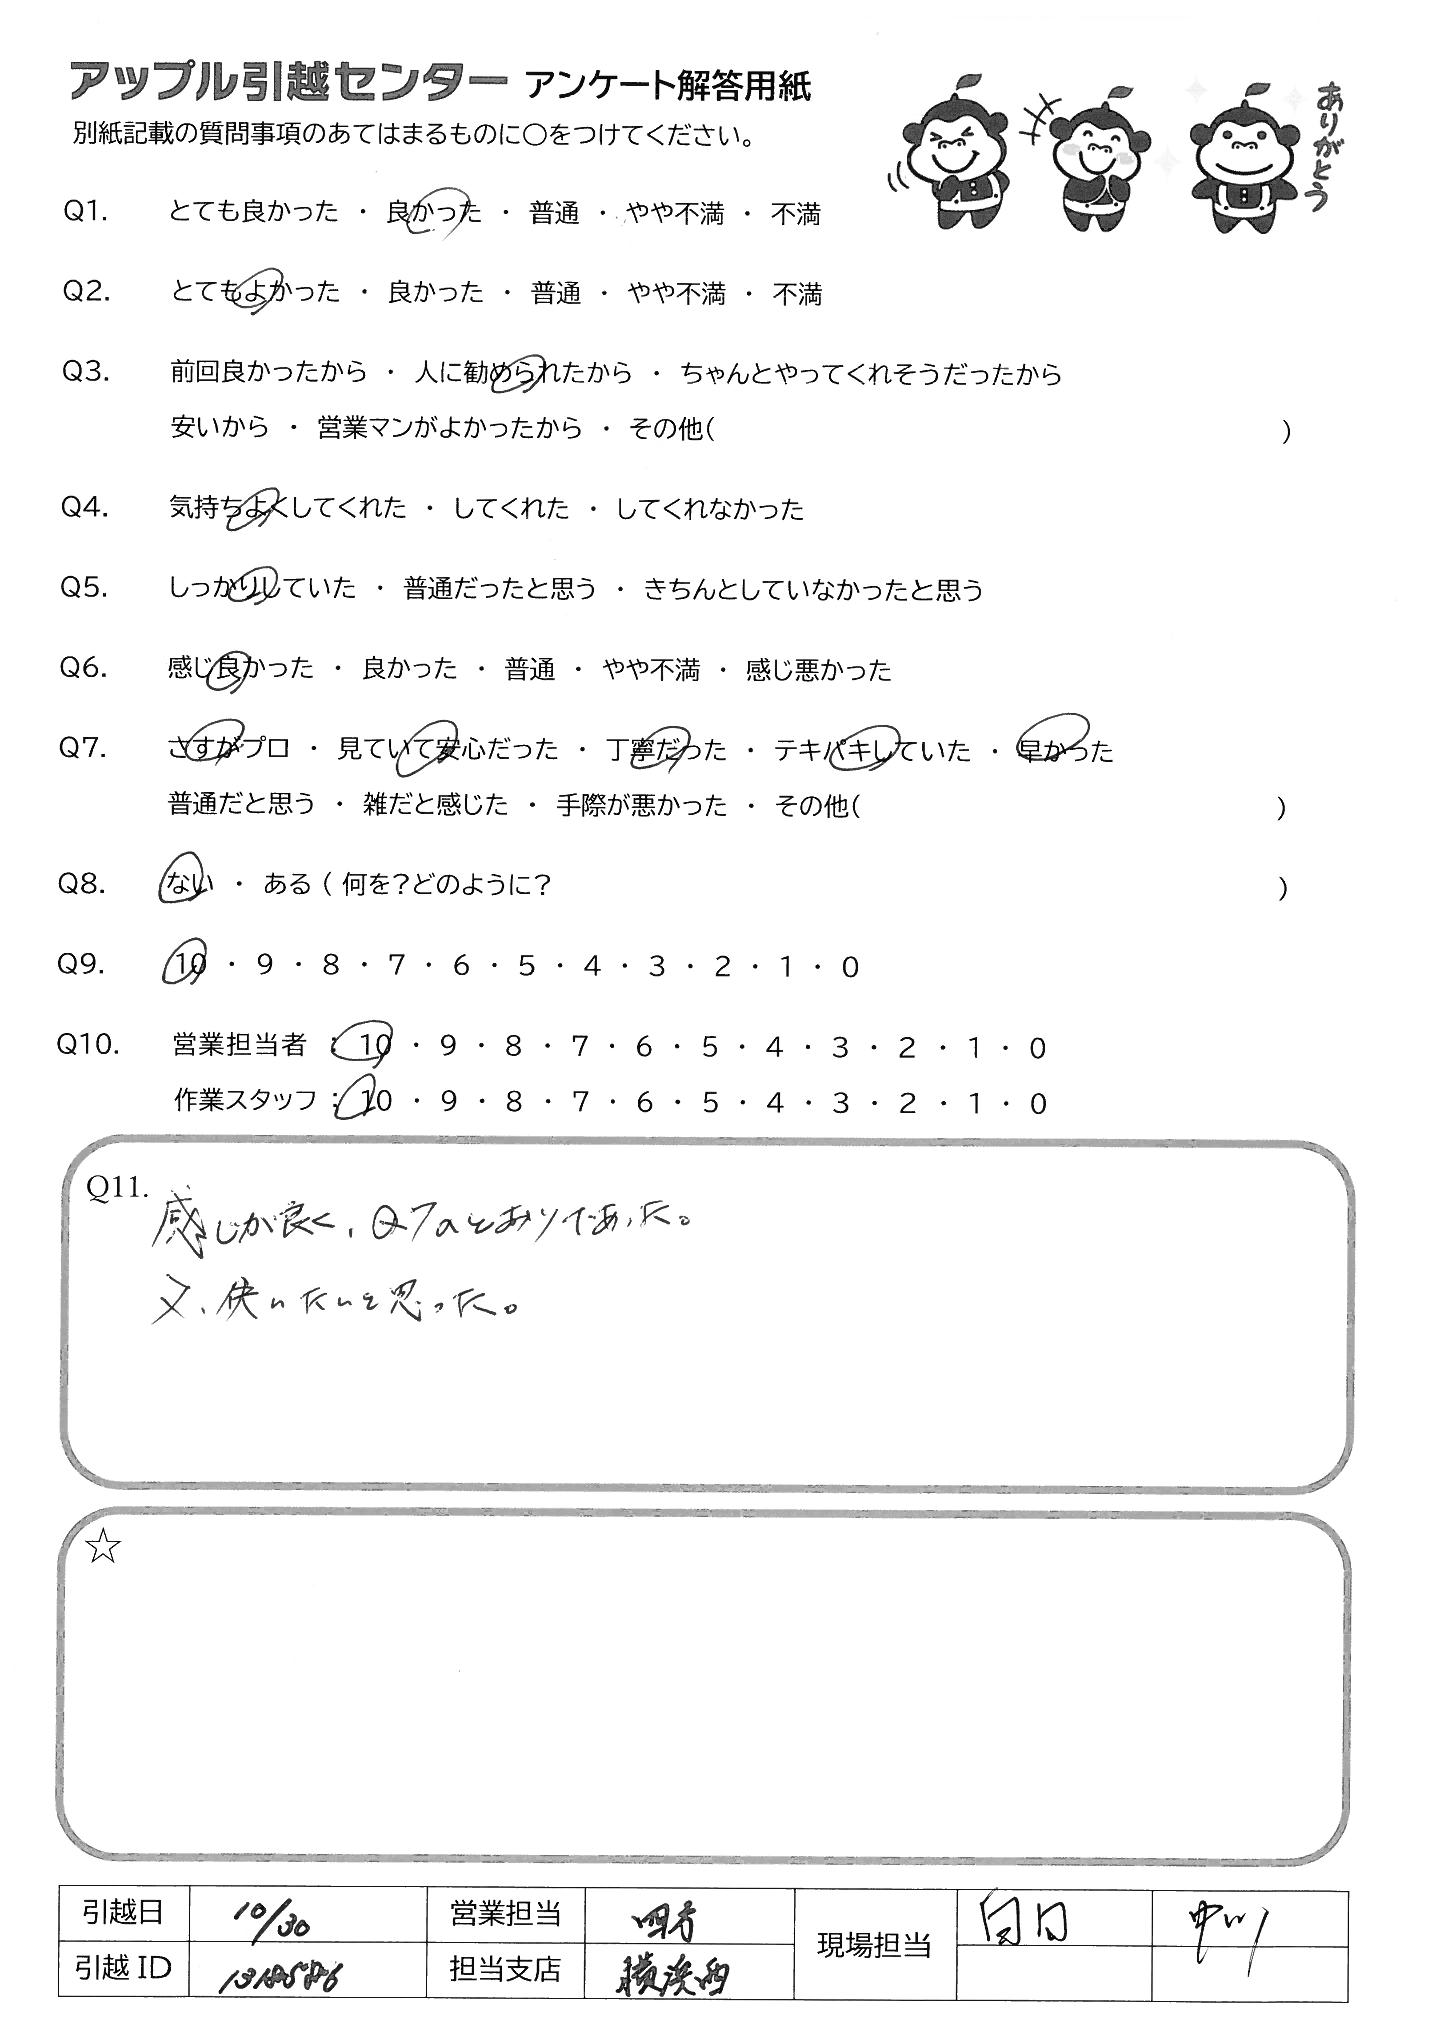 アップル引越センター アンケート解答用紙
別紙記載の質問事項のあてはまるものに○をつけてください。
ありがとう
Q1. とても良かった ・ 良かった ・ 普通 ・ やや不満 ・ 不満
Q2. とてもよかった ・ 良かった ・ 普通 ・ やや不満 ・ 不満
Q3. 前回良かったから ・ 人に勧められたから ・ ちゃんとやってくれそうだったから
安いから ・ 営業マンがよかったから ・ その他( )
Q4. 気持ちよくしてくれた ・ してくれた ・ してくれなかった
Q5. しっかりしていた ・ 普通だったと思う ・ きちんとしていなかったと思う
Q6. 感じ良かった ・ 良かった ・ 普通 ・ やや不満 ・ 感じ悪かった
Q7. さすがプロ ・ 見ていて安心だった ・ 丁寧だった ・ テキパキしていた ・ 早かった
普通だと思う ・ 雑だと感じた ・ 手際が悪かった ・ その他( )
Q8. ない ・ ある ( 何を?どのように? )
Q9. 10 ・ 9 ・ 8 ・ 7 ・ 6 ・ 5 ・ 4 ・ 3 ・ 2 ・ 1 ・ 0
Q10. 営業担当者 : 10 ・ 9 ・ 8 ・ 7 ・ 6 ・ 5 ・ 4 ・ 3 ・ 2 ・ 1 ・ 0
作業スタッフ : 10 ・ 9 ・ 8 ・ 7 ・ 6 ・ 5 ・ 4 ・ 3 ・ 2 ・ 1 ・ 0
Q11.
感じが良く、Q7のとおりであった。
又、使いたいと思った。
☆
引越日 10/30 営業担当 四方 現場担当
引越ID 担当支店 横浜西